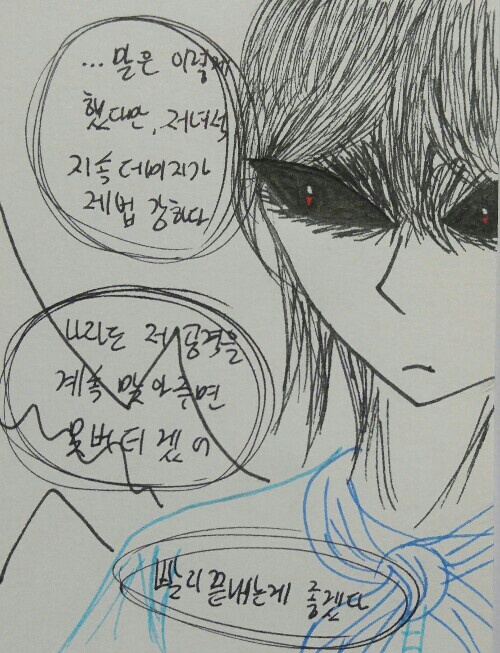 ...말은 이렇게
했다만, 저녀석
지속데미지가
제법 강하다
나라도 저 공격을
계속 맞아주면
못버티겠어
빨리끝내는게 좋겠다